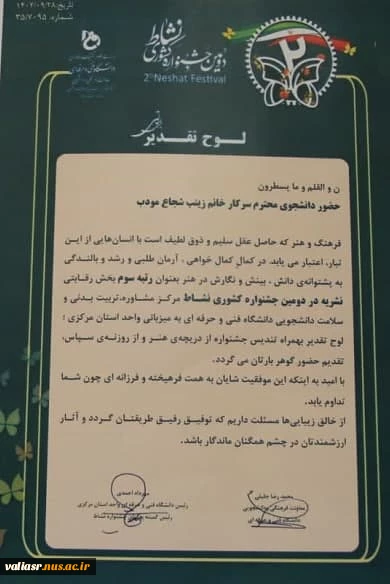 تاریخ: ۱۴۰۲/۰۹/۲۸
شماره: ۳۵/۷۰۹۵
دومین جشنواره کشوری نشاط
2nd Neshat Festival
۲
لوح تقدیر
ن و القلم و ما یسطرون
حضور دانشجوی محترم سرکار خانم زینب شجاع مودب
فرهنگ و هنر که حاصل عقل سلیم و ذوق لطیف است با انسان‌هایی از این
تبار، اعتبار می یابد. در کمال کمال خواهی ، آرمان طلبی و رشد و بالندگی
به پشتوانه‌ی دانش ، بینش و نگارش در هنر بعنوان رتبه سوم بخش رقابتی
نشریه در دومین جشنواره کشوری نشاط مرکز مشاوره،تربیت بدنی و
سلامت دانشجویی دانشگاه فنی و حرفه ای به میزبانی واحد استان مرکزی ؛
لوح تقدیر بهمراه تندیس جشنواره از دریچه‌ی هنر و از روزنه‌ی سپاس،
تقدیم حضور گوهر بارتان می گردد.
با امید به اینکه این موفقیت شایان به همت فرهیخته و فرزانه ای چون شما
تداوم یابد.
از خالق زیبایی‌ها مسئلت داریم که توفیق رفیق طریقتان گردد و آثار
ارزشمندتان در چشم همگنان ماندگار باشد.
محمد رضا جلیلی
معاونت فرهنگی و دانشجویی
دانشگاه فنی و حرفه ای
مهرداد احمدی
رئیس دانشگاه فنی و حرفه ای واحد استان مرکزی
رئیس کمیته جشنواره نشاط
valiasr.nus.ac.ir